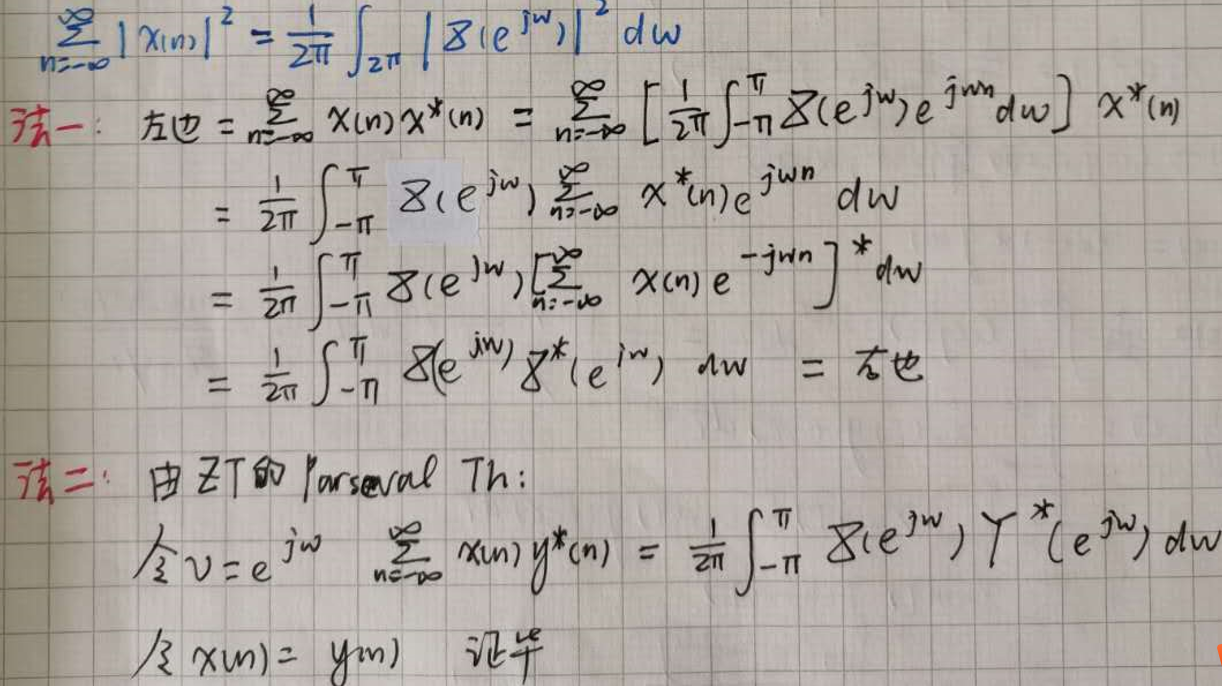 ∑_{n=-∞}^{∞} |x(n)|² = 1/2π ∫_{2π} |X(e^{jw})|² dw
法一: 左边 = ∑_{n=-∞}^{∞} x(n) x*(n) = ∑_{n=-∞}^{∞} [1/2π ∫_{-π}^{π} X(e^{jw}) e^{jwn} dw] x*(n)
= 1/2π ∫_{-π}^{π} X(e^{jw}) ∑_{n=-∞}^{∞} x*(n) e^{jwn} dw
= 1/2π ∫_{-π}^{π} X(e^{jw}) [∑_{n=-∞}^{∞} x(n) e^{-jwn}]* dw
= 1/2π ∫_{-π}^{π} X(e^{jw}) X*(e^{jw}) dw = 右边
法二: 由ZT的 Parseval Th:
令 v = e^{jw} ∑_{n=-∞}^{∞} x(n) y*(n) = 1/2π ∫_{-π}^{π} X(e^{jw}) Y*(e^{jw}) dw
令 x(n) = y(n) 证毕